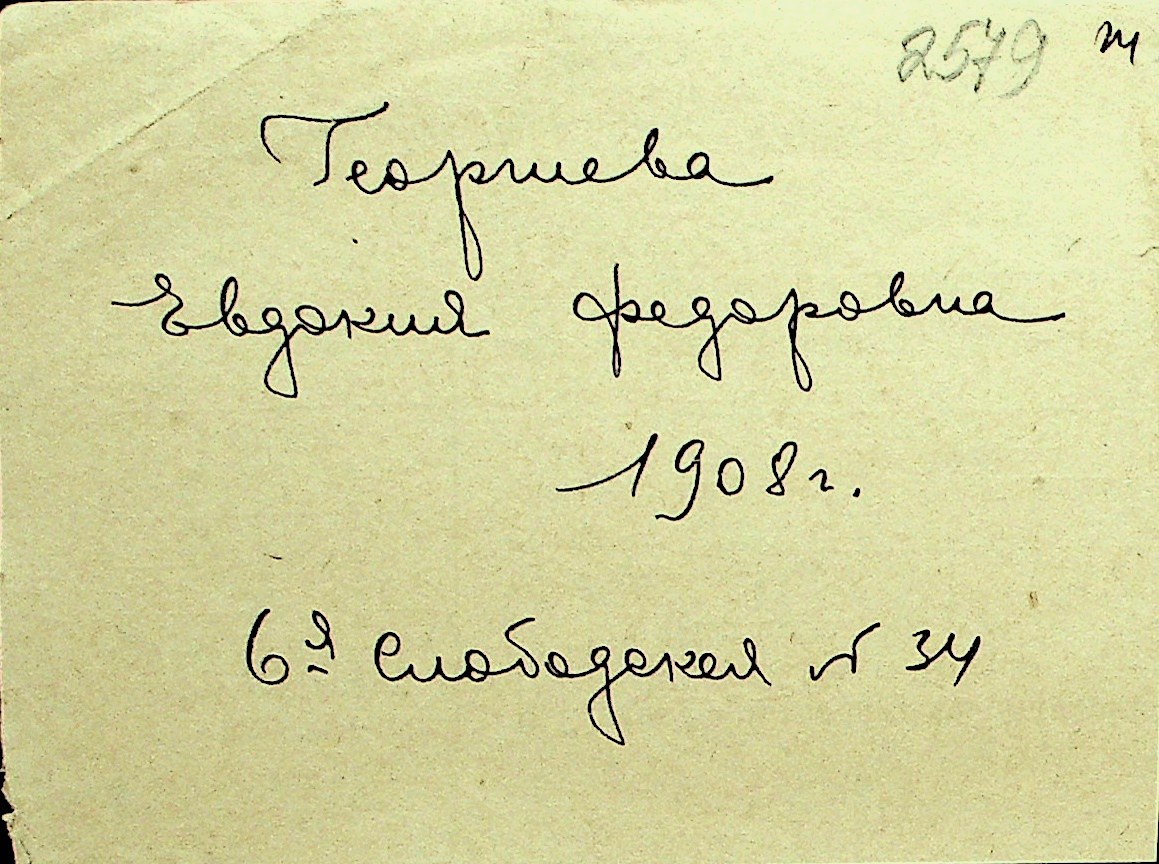 2579
Георгиева
Евдокия Федоровна
1908 г.
6я Слободская № 34